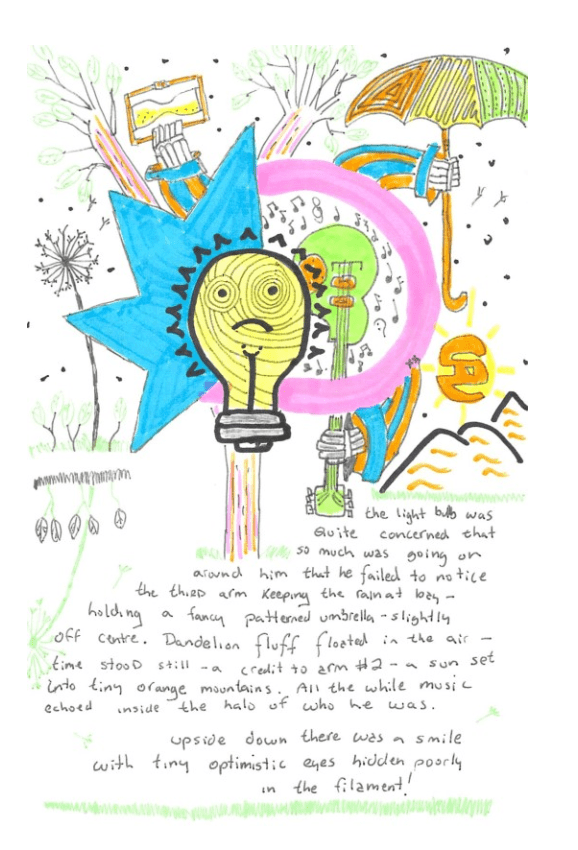 the light bulb was
Quite concerned that
so much was going on
around him that he failed to notice
the third arm keeping the rain at bay –
holding a fancy patterned umbrella – slightly
off centre. Dandelion fluff floated in the air –
time stood still – a credit to arm #2 – a sun set
into tiny orange mountains. All the while music
echoed inside the halo of who he was.
upside down there was a smile
with tiny optimistic eyes hidden poorly
in the filament!